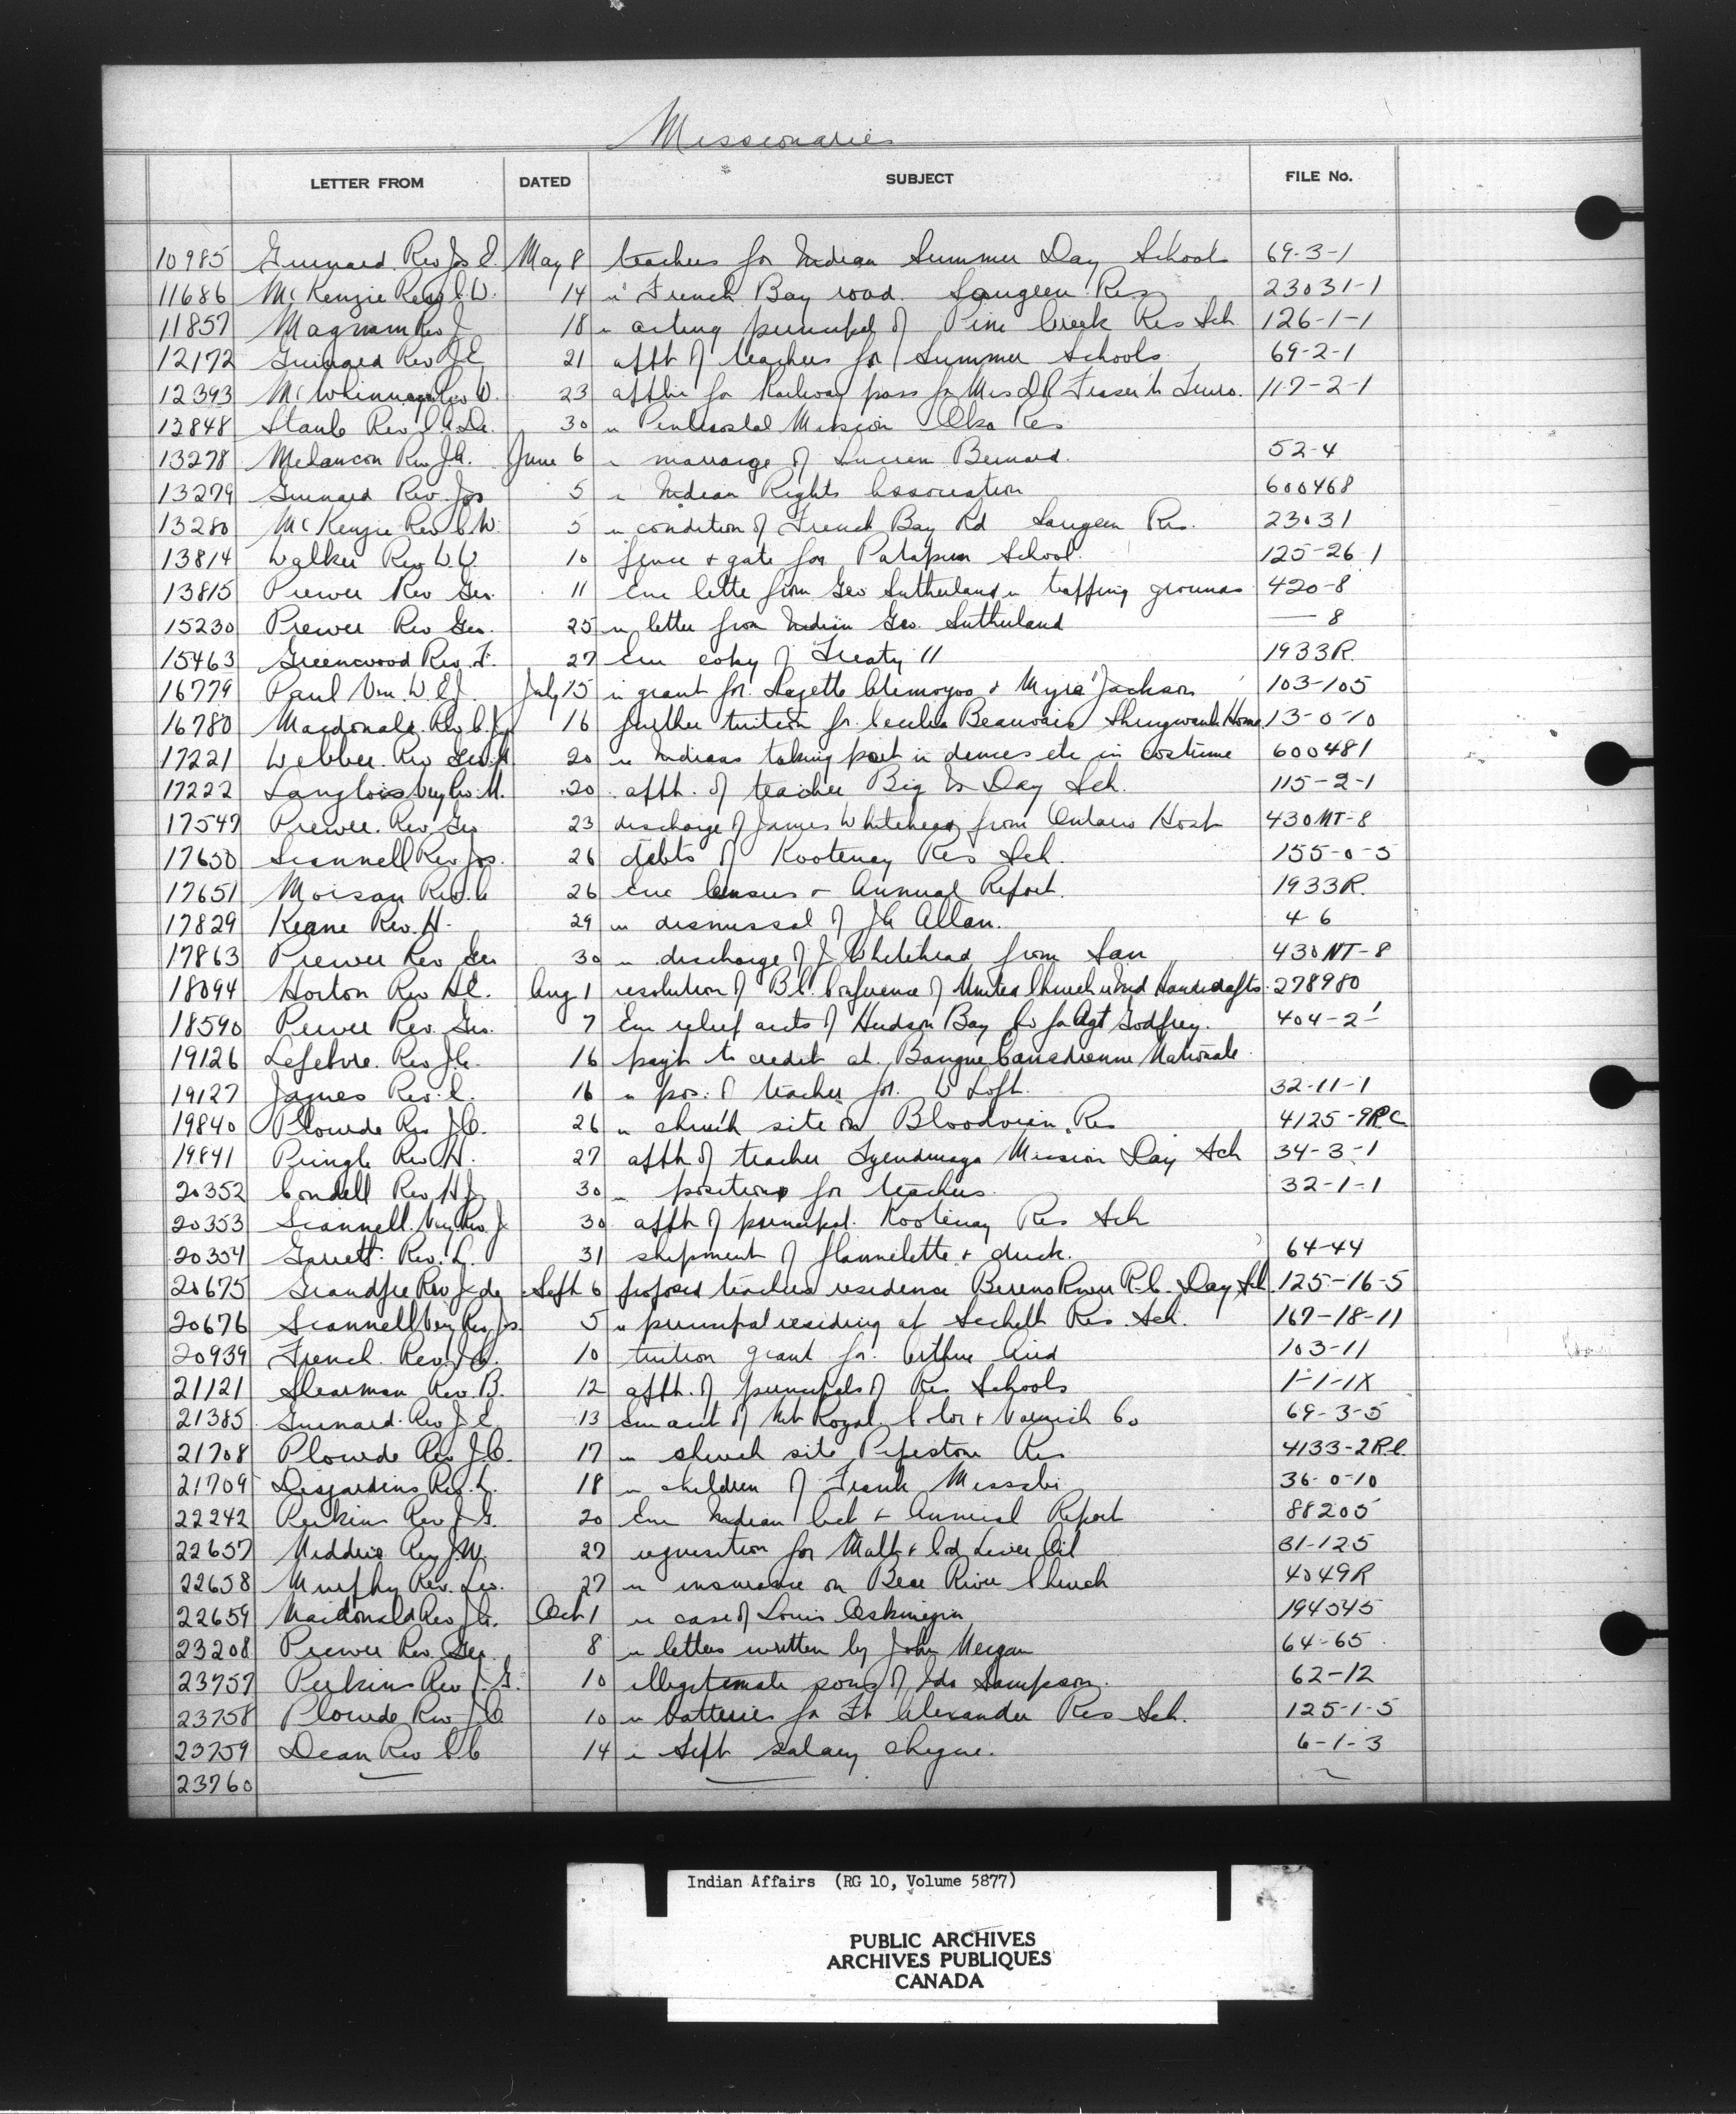 Missionaries
LETTER FROM DATED SUBJECT FILE No.
10985 Guinard Rev Jos E May 8 teachers for Indian Summer Day Schools 69-3-1
11686 McKenzie Rev C.W. 14 re French Bay road. Saugeen Res 23031-1
11857 Magnan Rev J 18 re acting principal of Pine Creek Res Sch 126-1-1
12172 Guinard Rev J E 21 appt of teachers for Summer Schools 69-2-1
12393 McWhinney Rev W. 23 applic for Railway pass for Mrs Fraser to Truro. 117-2-1
12848 Staub Rev 30 re Pentecostal Mission Oka Res
13278 Melancon Rev J.A. June 6 re marraige of Lucien Bernard. 52-4
13279 Guinard Rev. Jos 5 re Indian Rights Association 600468
13280 McKenzie Rev C W. 5 re condition of French Bay Rd Saugeen Res. 23031
13814 Walker Rev W.W. 10 fence + gate for School. 125-26-1
13815 Prewer Rev Geo. 11 Enc letter from Geo Sutherland re trapping grounds 420-8
15230 Prewer Rev Geo. 25 re letter from Indian Geo. Sutherland — 8
15463 Greenwood Rev. T. 27 Enc copy of Treaty 11 1933R
16779 Paul Ven. W E J. July 15 re grant for. + Myra Jackson 103-105
16780 Macdonald. Rev 16 further tuition for Cecelia Beauvais Shingwauk Home 13-0-10
17221 Webber. Rev Geo. 20 re Indians taking part in dances etc in costume 600481
17222 Langlois Very Rev. M. 20 appt. of teacher Big Is Day Sch. 115-2-1
17547 Prewer. Rev Geo 23 discharge of James Whitehead from Ontario Hosp 430NT-8
17650 Scannell Rev Jos. 26 debts of Kootenay Res Sch. 155-0-5
17651 Moisan Rev. C 26 Enc Census + Annual Report. 1933R.
17829 Keane Rev. H. 29 re dismissal of Allan. 4 6
17863 Prewer Rev Geo 30 re discharge of J. Whitehead from San 430NT-8
18094 Horton Rev H E. Aug 1 resolution of B C. Conference of United Church re Ind Handicrafts 278980
18590 Prewer Rev. Geo. 7 Enc relief accts of Hudson Bay Co for Agt Godfrey. 404-2-1
19126 Lefebvre. Rev J. 16 payt to credit at. Banque Canadienne Nationale
19127 Jaques Rev. E. 16 re pos. of teacher for. W Loft. 32-11-1
19840 Plourde Rev J.O. 26 re church site on Bloodvein Res 4125-9R.C.
19841 Pringle Rev H. 27 appt of teacher Tyendinaga Mission Day Sch 34-3-1
20352 Condell Rev, H J. 30 re positions for teachers. 32-1-1
20353 Scannell. Very Rev. J 30 appt of principal. Kootenay Res Sch
20354 Garrett. Rev. L. 31 shipment of flannelette + duck. 64-44
20675 Grandpre Rev J de Sept 6 proposed teachers residence Berens River R.C. Day Sch. 125-16-5
20676 Scannell Very Rev. Jos. 5 re principal residing at Sechelt Res. Sch. 167-18-11
20939 French. Rev. 10 tuition grant for. Arthur 103-11
21121 Shearman Rev. B. 12 appt. of principals of Res Schools 1-1-1X
21385 Guinard. Rev J. E. 13 Enc acct of Mt Royal Color + Varnish Co 69-3-5
21708 Plourde Rev J.O. 17 re church site Pipestone Res 4133-2R.C.
21709 Desjardins Rev. L. 18 re children of Frank Missabi 36-0-10
22242 Perkins Rev J. G. 20 Enc Indian Act + Annual Report 88205
22657 Rev. J.W. 27 requisition for Malt + Cod Liver Oil 31-125
22658 Murphy Rev. Leo. 27 re insurance on Bear River Church 4049R
22659 MacDonald Rev J. Oct 1 re case of Louis 194545
23208 Prewer Rev Geo. 8 re letters written by John 64-65
23757 Perkins Rev J. G. 10 illegitemate sons of Ida Sampson. 62-12
23758 Plourde Rev J.O. 10 re batteries for Ft Alexander Res Sch. 125-1-5
23759 Dean Rev 14 re Sept salary cheque. 6-1-3
23760
Indian Affairs (RG 10, Volume 5877)
PUBLIC ARCHIVES
ARCHIVES PUBLIQUES
CANADA